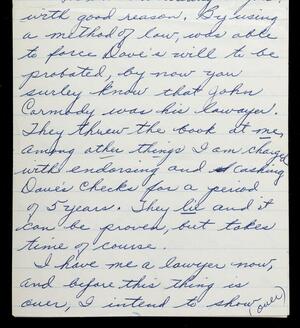 with good reason. By using
a method of law, was able
to force Dave's will to be
probated, by now you
surley know that John
Carmody was his lawayer.
They threw the book at me,
among other things I am charged
with endorsing and cashing
Dave's Checks for a period
of 5 years. They lie and it
can be proven, but takes
time of course.
I have me a lawyer now,
and before this thing is
over, I intend to show
(over)